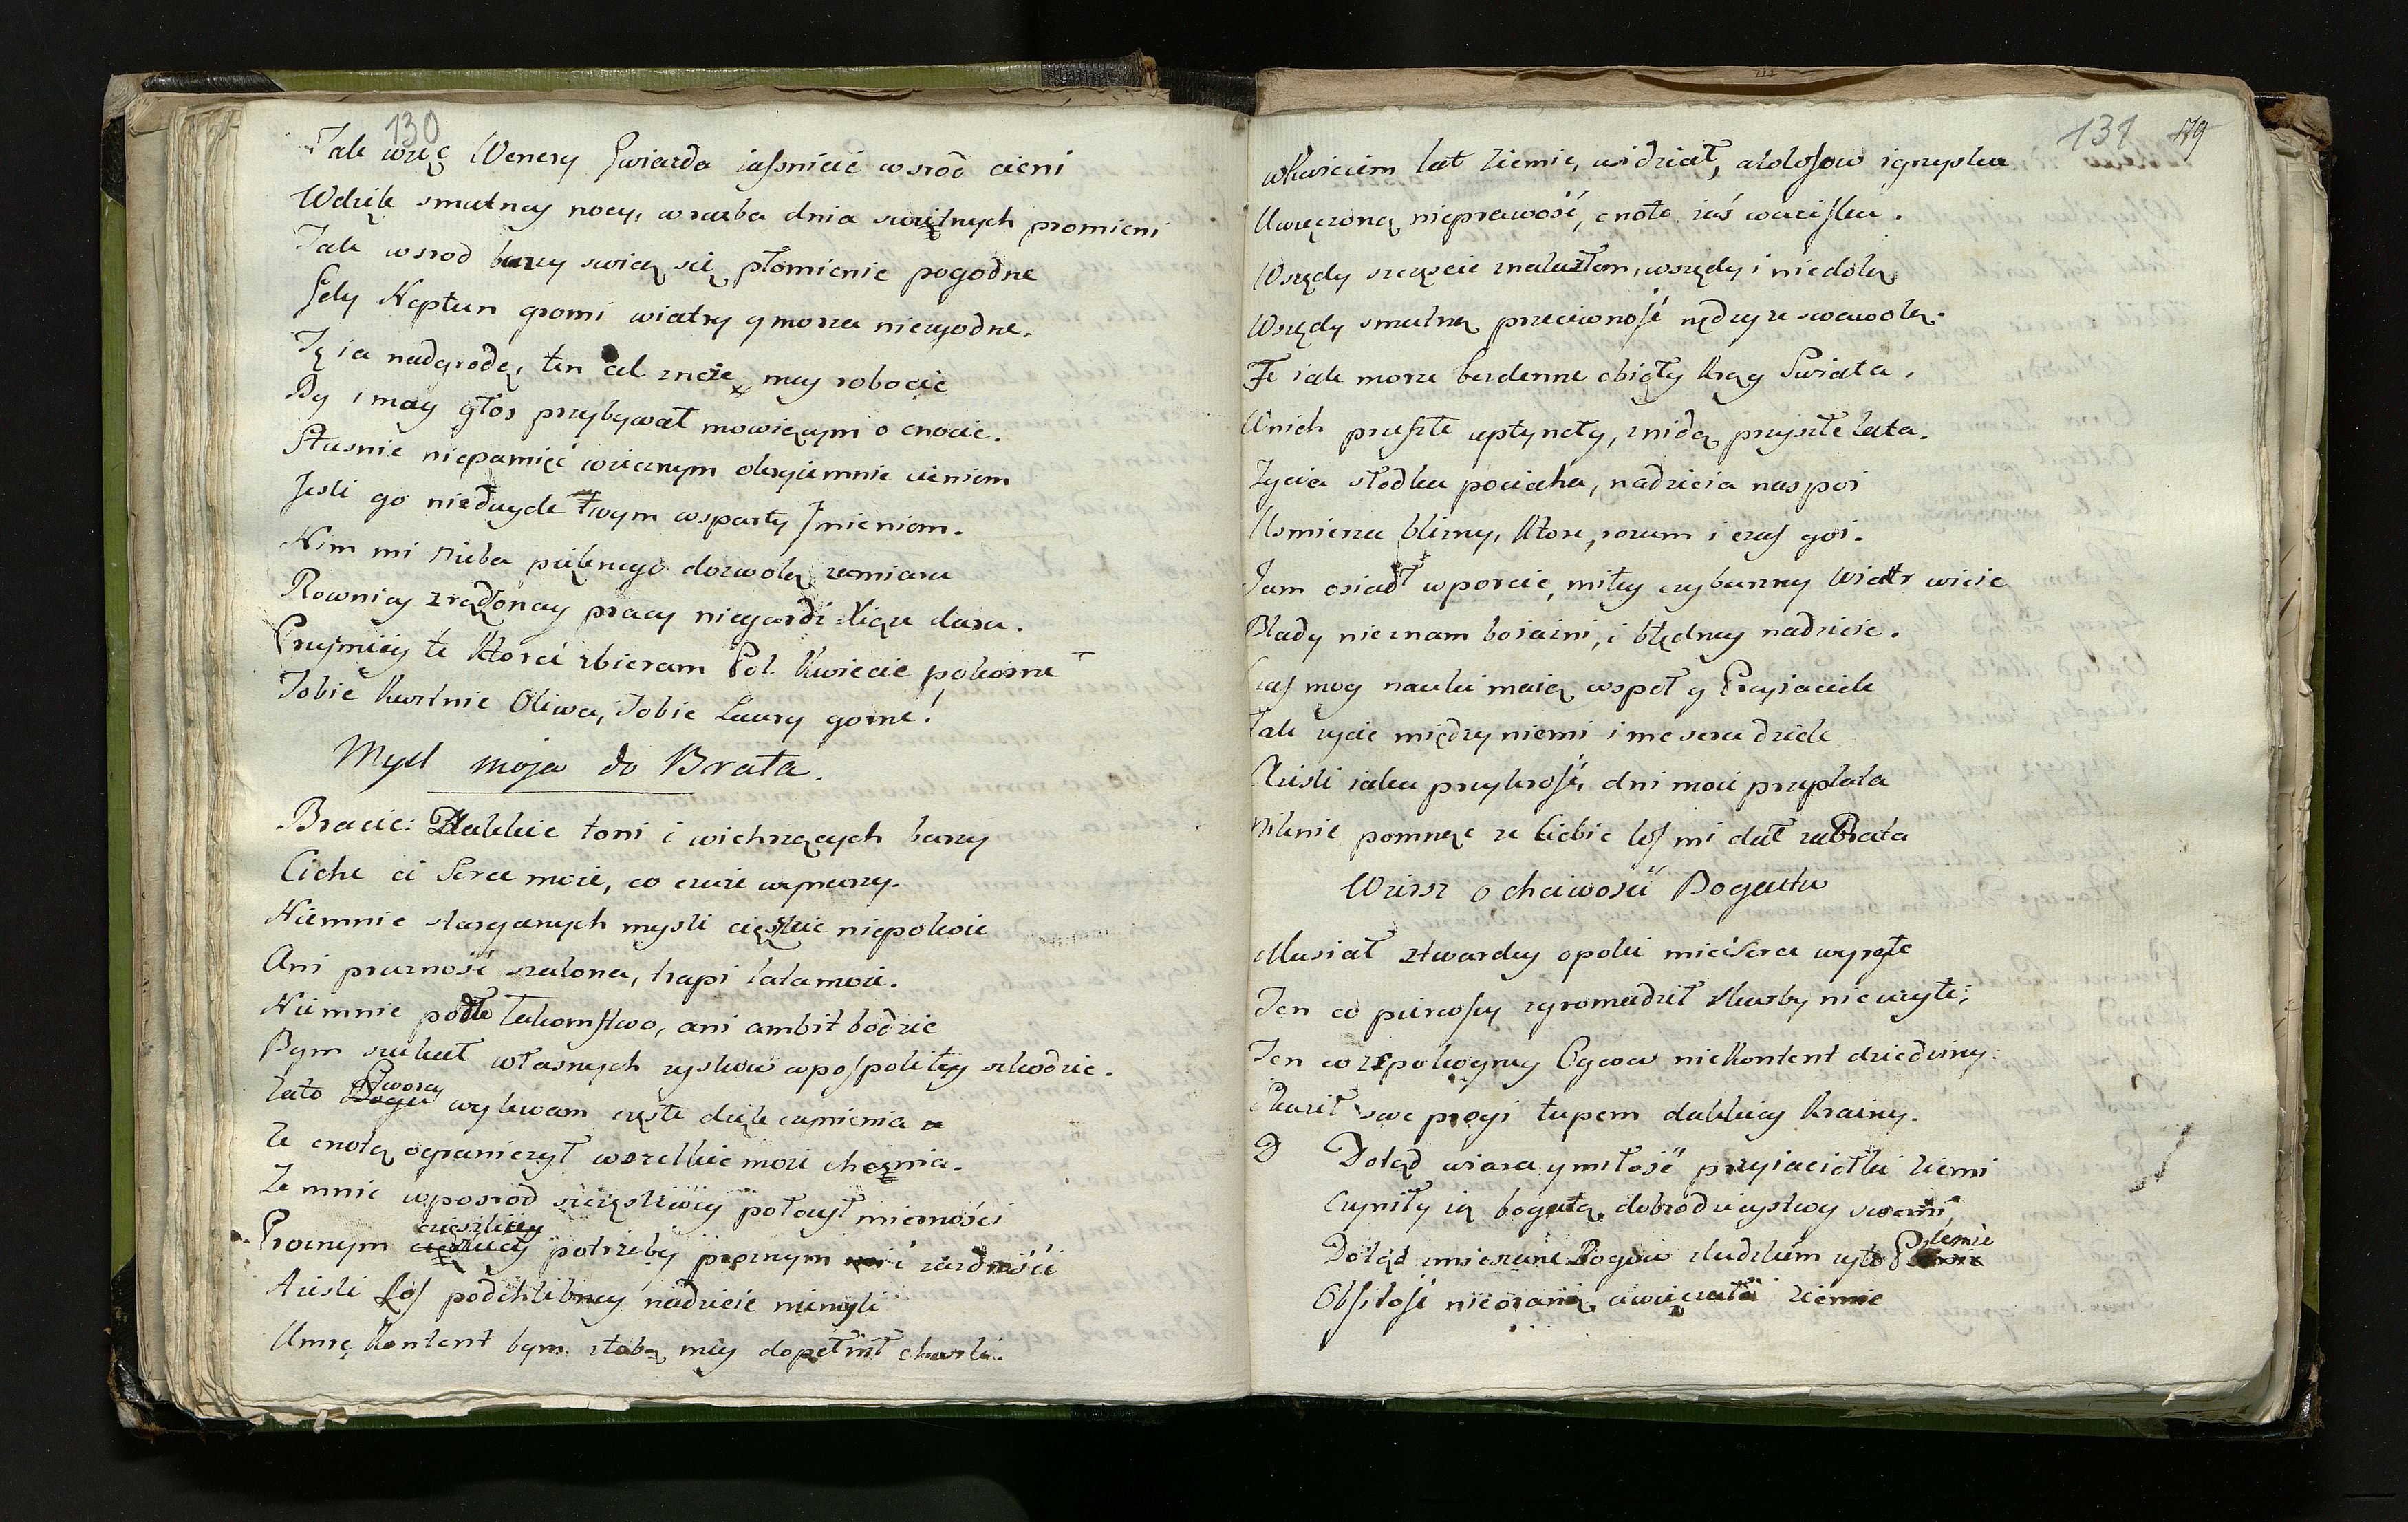 130
Tak wżę Wenery Gwiazda iaſsnieie wsrod cieni
Wdzięk smutney nocy, wrużba dnia swiętnych promieni
Tak wsrod burzy swieą się płomienie pogodne
Gdy Neptun gromi wiatry y morza niezgodne.
Tę ia nadgrodę, ten cel znożę mey robocie
By i moy głos przybywał mowiącym o cnocie.
Słusnie niepamięć wiecznym okryie mnie cieniem
Jesli go niedzwyde twym wsparty Jmieniem.
Nim mi nieba pięknego dozwolą zamiaru
Rowniey zrządzoney pracy niegardź xiąże daru.
Przyjmiiy te ktoreć zbieram Pol. kwiecie pokorne
Tobie kwitnie Oliwa, Tobie Laury gorne!
Mysl moja do Brata.
Bracie: Dalekie toni i wichrzących burzy
Ciche ci Serce może, co czuie wynurzy.
Niemnie starganych mysli cięszkie niepokoie
Ani prozność szalona, trapi lata moie.
Niemnie podłe łakomſtwo, ani ambit bodzie
Bym szukał własnych zyskow wpoſpolitey szkodzie.
Zato Stworcy wylewam częste dzięk czynienia
Ze cnotą ograniczył wszelkie moie chęnia.
Ze mnie wposrod szczęsliwey położył miernosci
Proznym ciężkiey potrzeby proznym i zazdrości
Jeżeli Loſ podchlibney nadzieie niemyli
Umrę kontent bym stobą mey dopełnił chwili.
131 79
wkwieciem lat ziemie, widział, a kłoſow igrzyska
Uwięczoną nieprawość, cnotę zaś w ucisku.
Wszędy szczęscie znalazłem, wszędy i niedolą
Wszędy smutną przeciwnoſć nędzy ze swawolą.
Te iak morze bezdenne obięły krąg Swiata,
Wnich przeſzłe upłynęły, znidą przyszłe lata.
Życia słodka pociecha, nadzieia nas poi
Usmierza blizny, ktore, rozum i czaſ goi.
Jam osiadł w porcie, miły czy burzny wiatr wieie
Blady nieznam boiaźni, i błędney nadzieie.
Czaſ moy nauki maią wspoł y Przyiaciele
Tak życie między niemi i me serce dziele
A iesli iaka przykroſć, dni moie przeplata
Pilnie pomnąc ze Ciebie loſ mi dał za Brata
Wiersz o chciwosci Bogactw
Musiał z twardey opoki mieć Serce wyryte
Ten co pierwſzy zgromadził Skarby nieużyte;
Ten co z spokoyney Oycow niekontent dziedziny:
Skaził swe progi łupem dalekiey krainy.
D Dotąd wiara y miłość przyiaciołki ziemi
Czyniły ią bogatą dobrodzieystwy swemi,
Dotąd zmieszane Bogow z ludzkim żyło Plemie
Obſitość nieoraną uwięczała ziemie